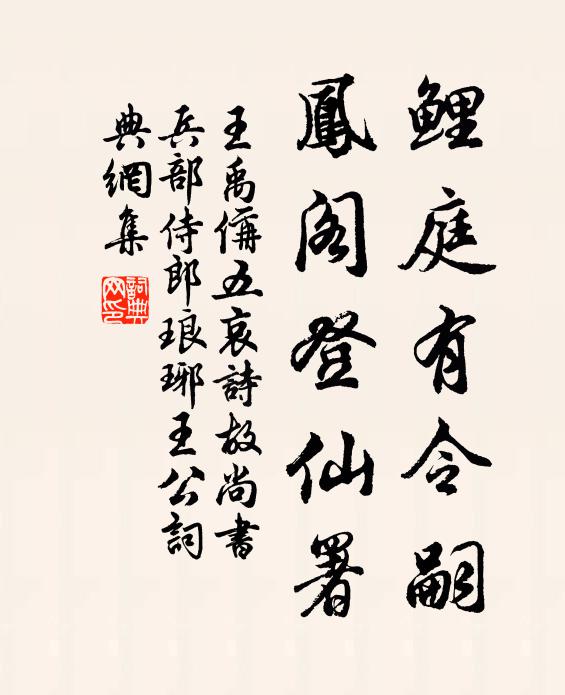 鯉庭有令嗣
鳳閣登仙署
王禹偁五哀詩故尚書
兵部侍郎琅琊王公詞
典網集
詞典
网印